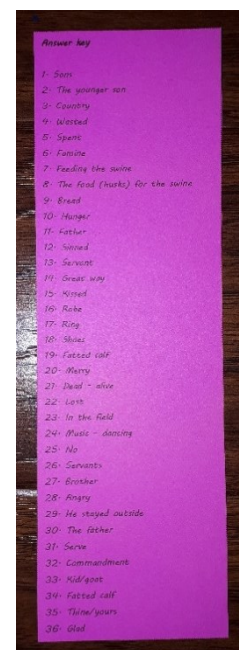 Answer key
1- Sons
2- The younger son
3- Country
4- Wasted
5- Spent
6- Famine
7- Feeding the swine
8- The food (husks) for the swine
9- Bread
10- Hunger
11- Father
12- Sinned
13- Servant
14- Great way
15- Kissed
16- Robe
17- Ring
18- Shoes
19- Fatted calf
20- Merry
21- Dead - alive
22- Lost
23- In the field
24- Music - dancing
25- No
26- Servants
27- Brother
28- Angry
29- He stayed outside
30- The father
31- Serve
32- Commandment
33- Kid/goat
34- Fatted calf
35- Thine/yours
36- Glad